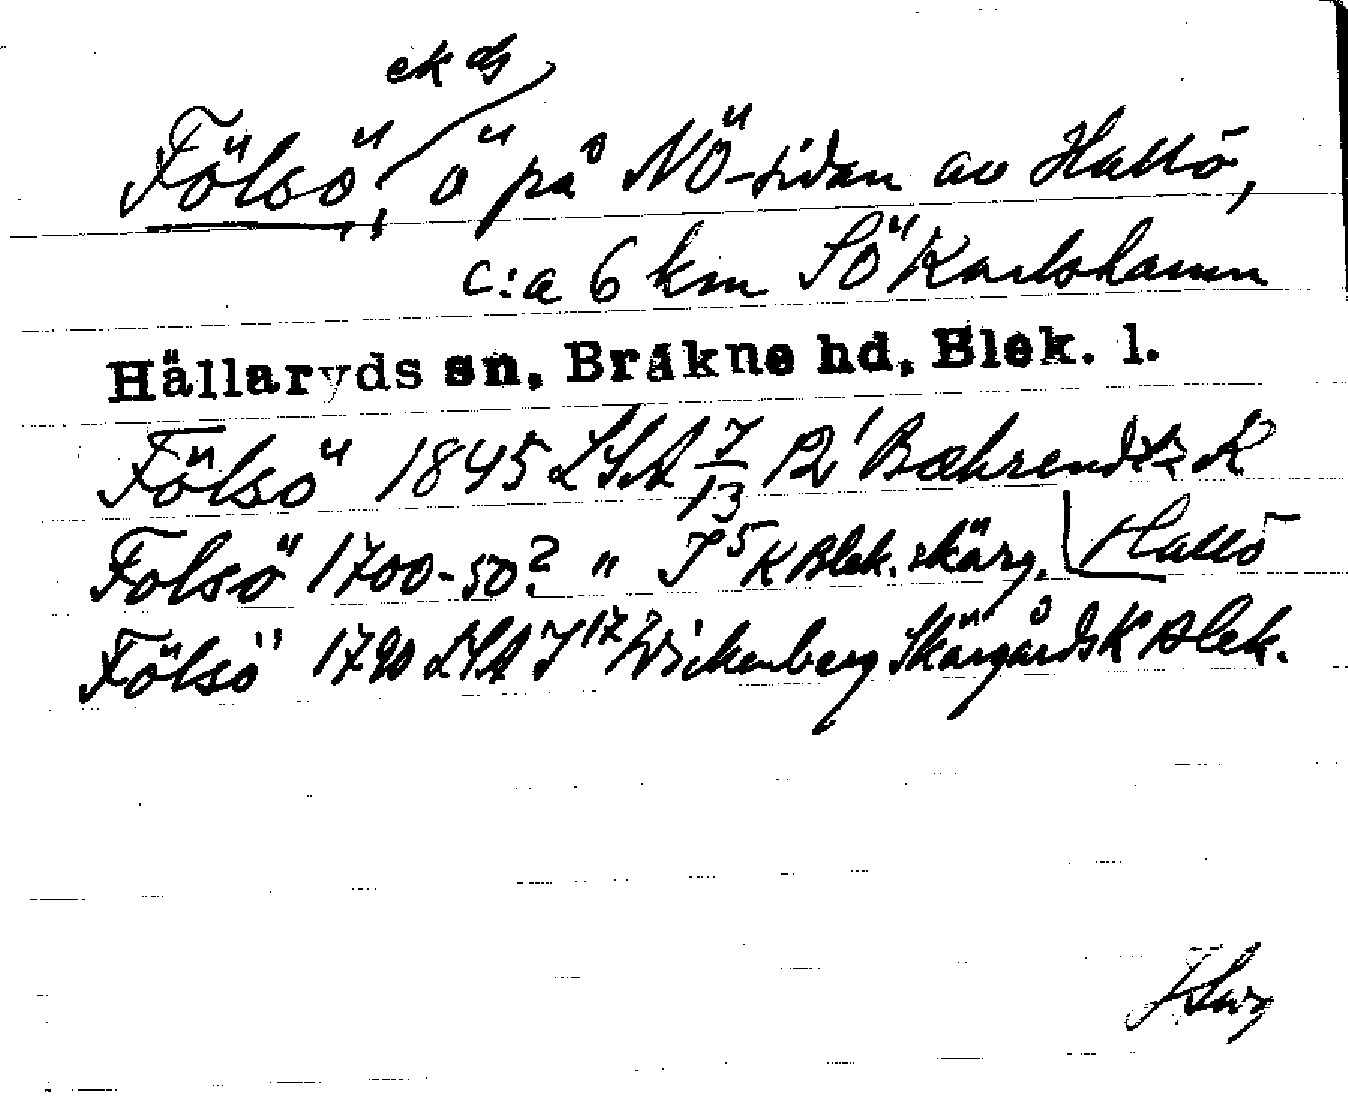 ek ds
Fölsö, ö på NÖ-sidan av Hallö,
c:a 6 km SÖ Karlshamn
Hällaryds sn, Bräkne hd, Blek. l.
Fölsö 1845 LSA 7/13 12' Bæhrendtz K
Folsö 1700-50? " J5 K Blek. skärg. Hallö
Fölsö 1790 LSA J17 Wickenberg Skärgårds K Blek.